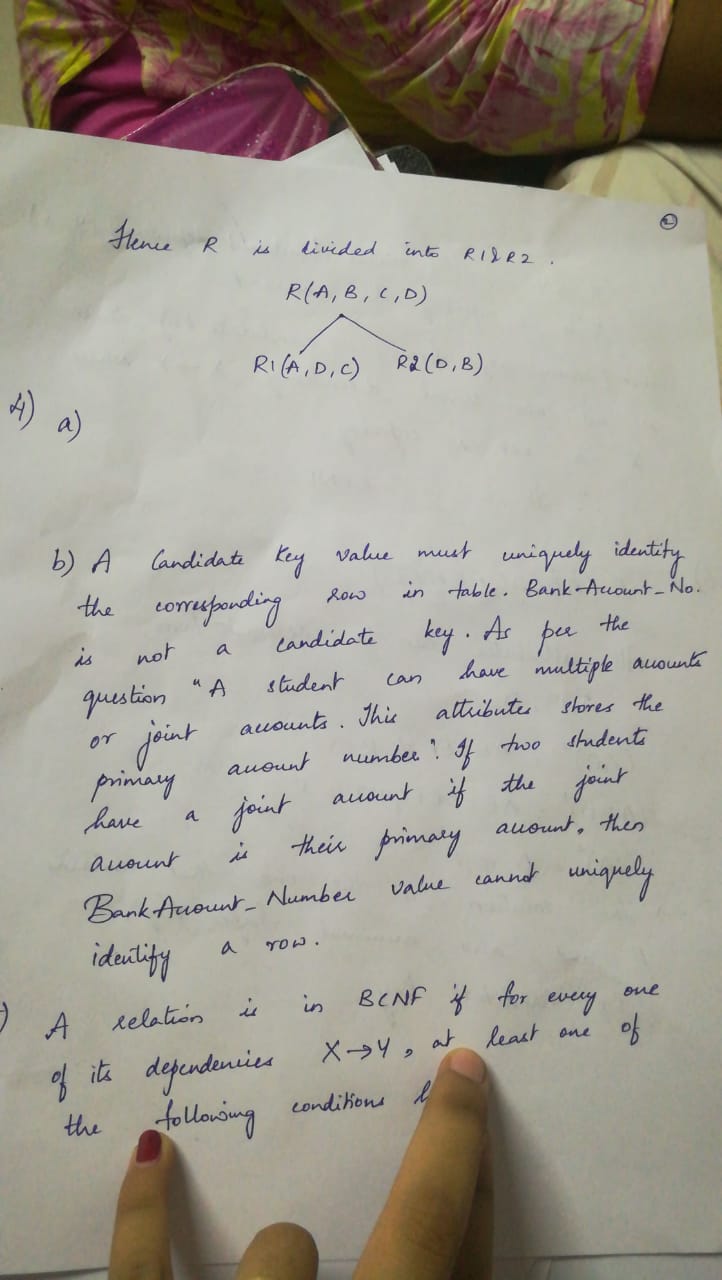 2
Hence R is divided into R1&R2.
R(A, B, C, D)
R1(A, D, C) R2(D, B)
4) a)
b) A Candidate Key value must uniquely identify
the corresponding row in table. Bank-Account_No.
is not a candidate key. As per the
question "A student can have multiple accounts
or joint accounts. This attributes stores the
primary account number". If two students
have a joint account if the joint
account is their primary account, then
BankAccount_Number value cannot uniquely
identify a row.
) A relation is in BCNF if for every one
of its dependencies X→Y, at least one of
the following conditions